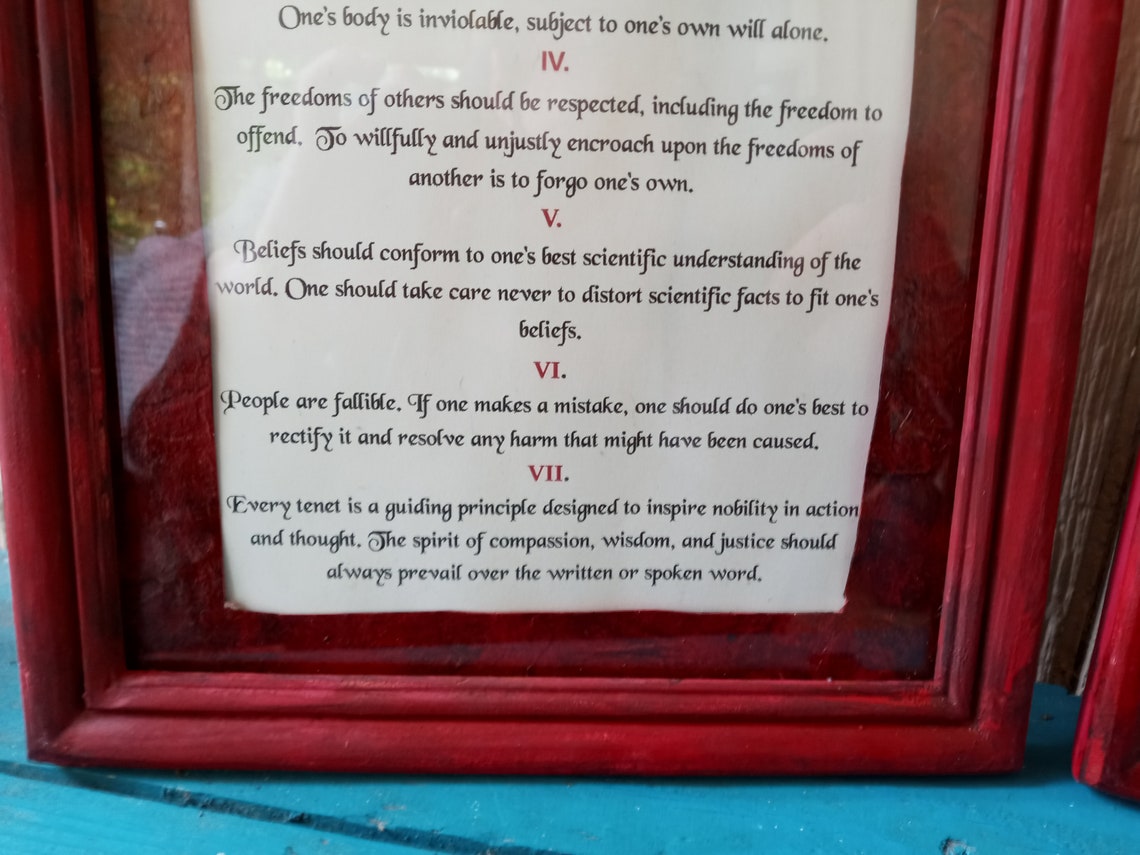 One's body is inviolable, subject to one's own will alone.
IV.
The freedoms of others should be respected, including the freedom to
offend. To willfully and unjustly encroach upon the freedoms of
another is to forgo one's own.
V.
Beliefs should conform to one's best scientific understanding of the
world. One should take care never to distort scientific facts to fit one's
beliefs.
VI.
People are fallible. If one makes a mistake, one should do one's best to
rectify it and resolve any harm that might have been caused.
VII.
Every tenet is a guiding principle designed to inspire nobility in action
and thought. The spirit of compassion, wisdom, and justice should
always prevail over the written or spoken word.